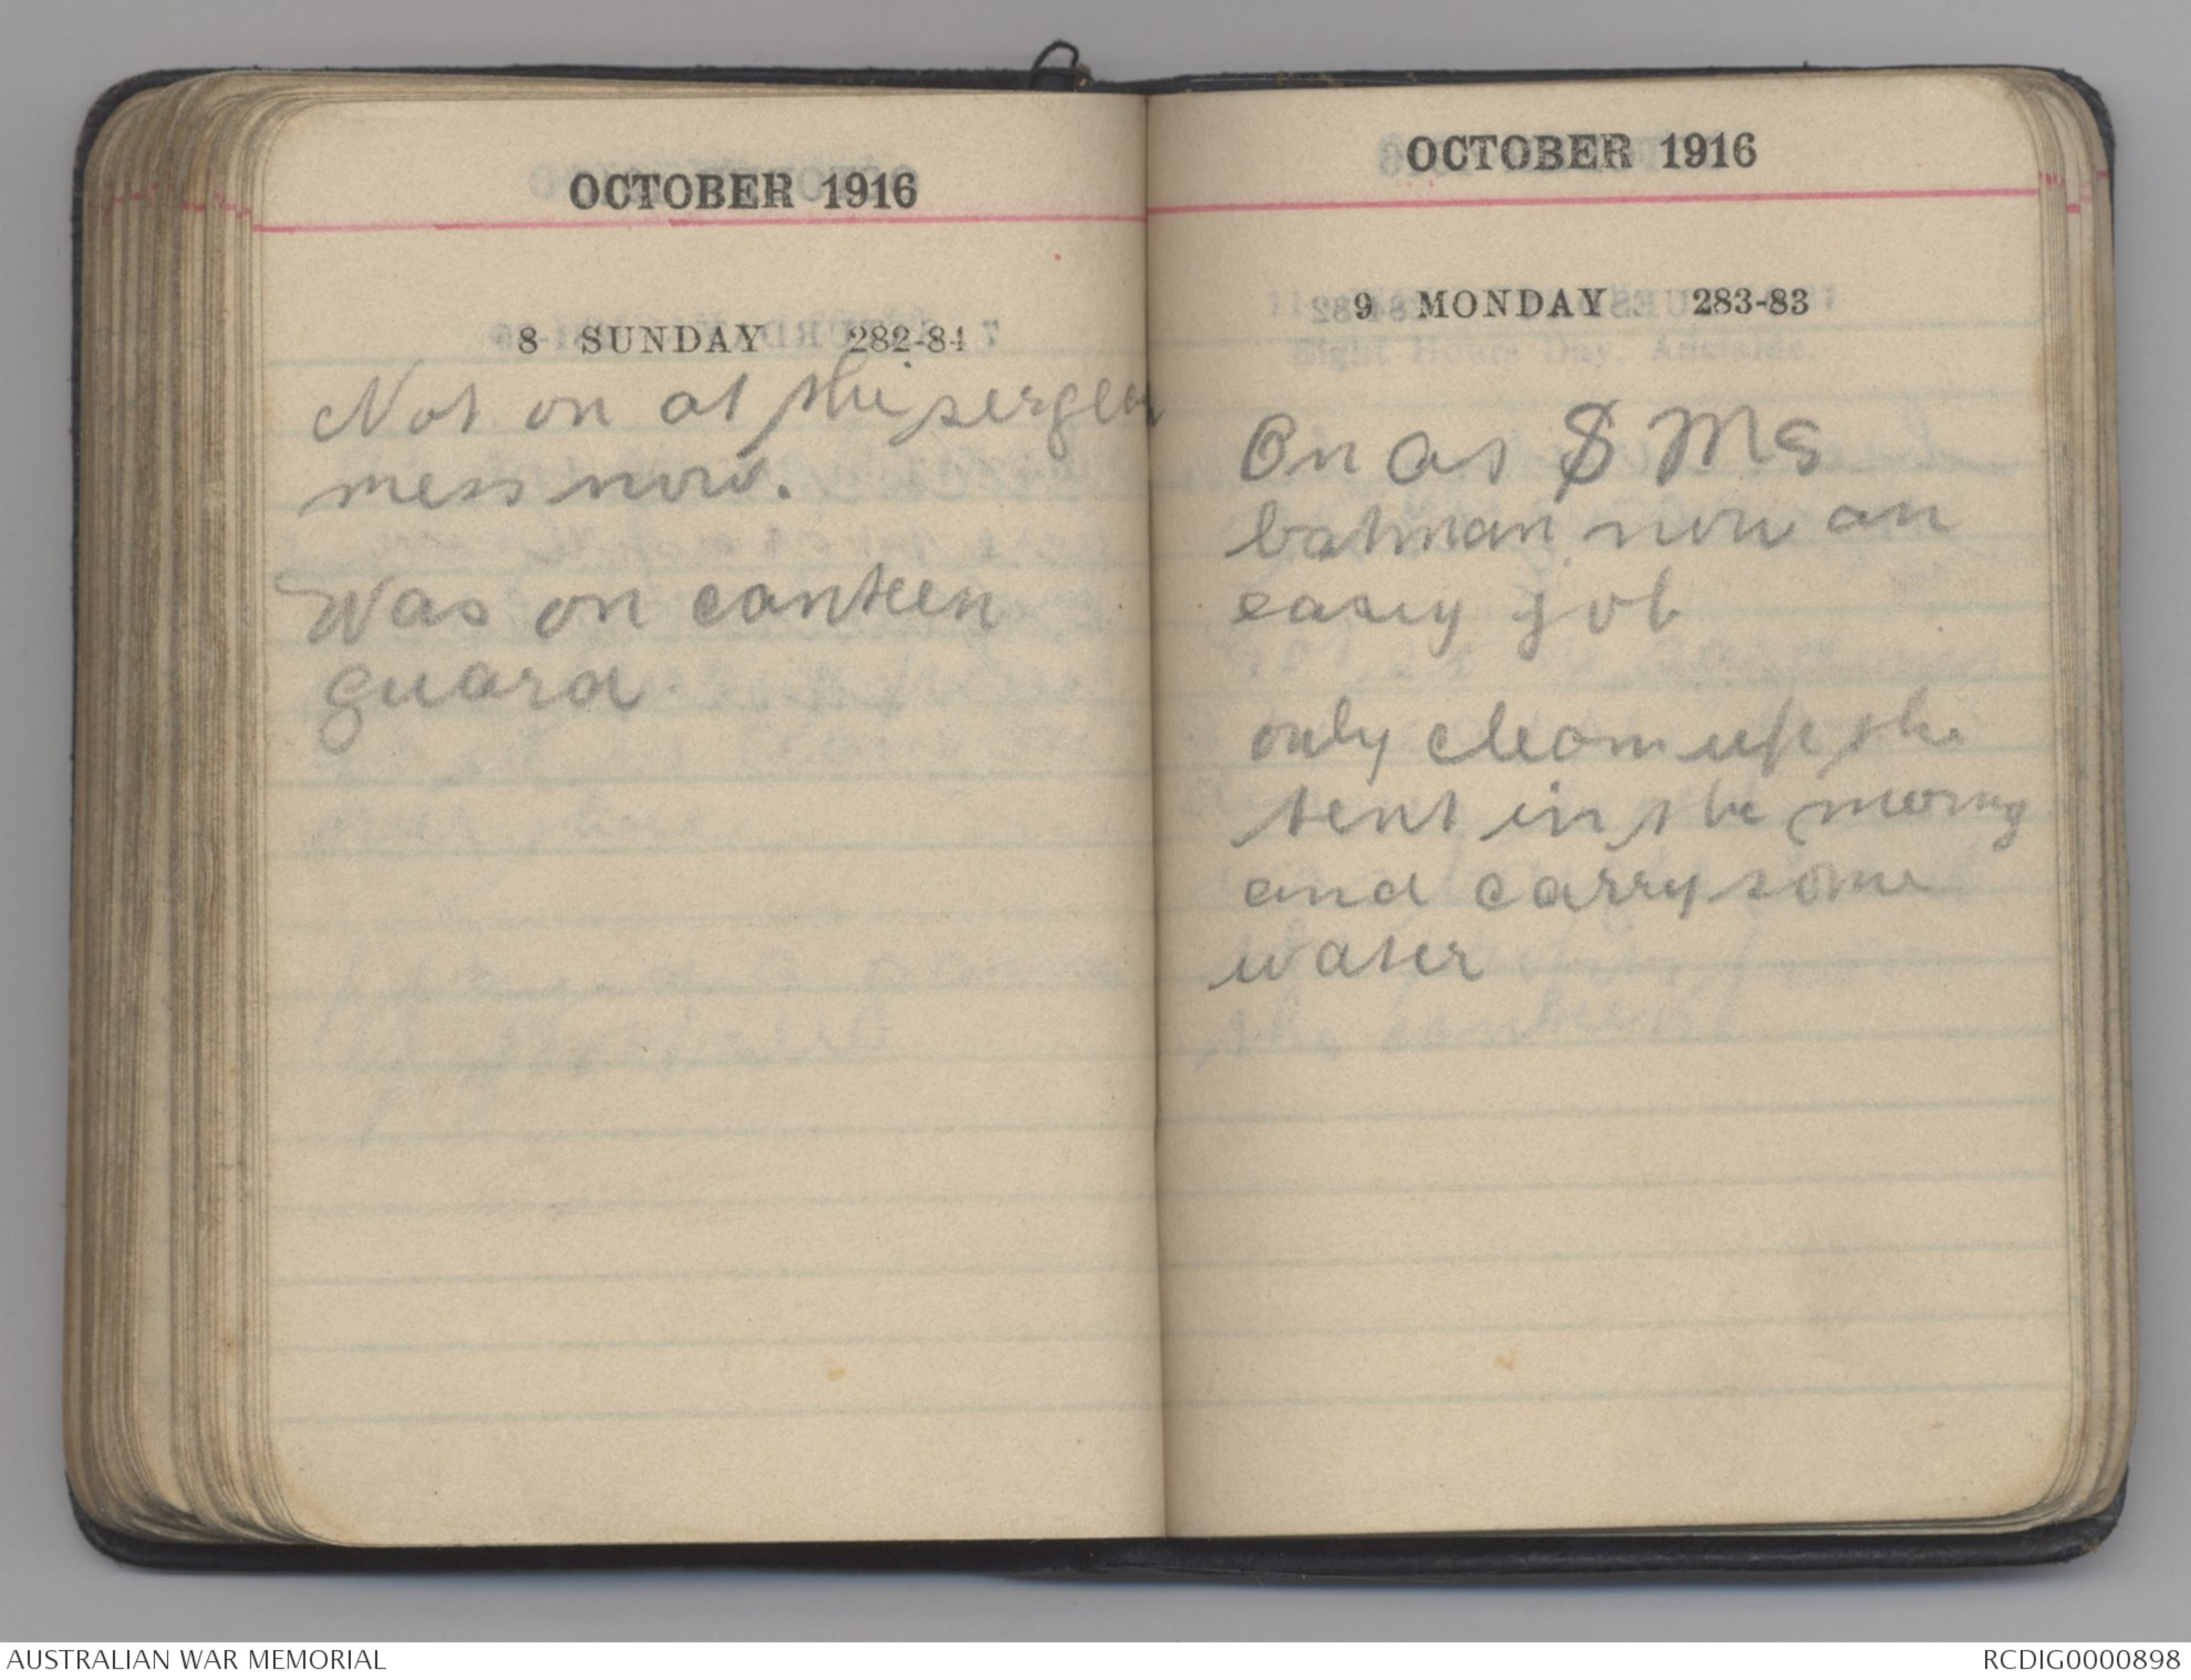 OCTOBER 1916
8 SUNDAY 282-84
Not on at the sergean
mess now.
Was on canteen
guard.
OCTOBER 1916
9 MONDAY 283-83
On as S Ms
batman now an
easiy job
only clean up the
tent in the morng
and carry some
water
AUSTRALIAN WAR MEMORIAL
RCDIG0000898